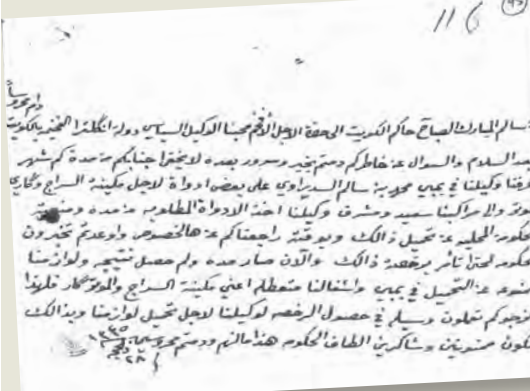 116
دام محروساً
سالم المبارك الصباح حاكم الكويت الى حضرة الاجل الافخم محبنا الوكيل السياسي دولة انكلترا الفخيمة بالكويت
بعد السلام والسوال عن خاطركم دمتم بخير وسرور بعده لا يخفى جنابكم من مدة كم شهر
عرفنا وكيلنا في بمبي محمد سالم السديراوي على بعض ادواة لاجل مكينة السراج وكاري
موتر والا مراكبنا سعيد ومشرف وكيلنا اخذ الادواة المطلوبه من مده
حكومة المحليه عن تحميل ذالك وبوقته راجعناكم عن هالخصوص واوعدتم تخبرون
حكومه لحتى تأمر برخصة ذالك والآن صار مده ولم حصل نتيجه ولوازمنا
ممنوعه عن التحميل في بمبي واشغالنا متعطله اعني مكينة السراج والموتر كار فلهذا
نرجوكم تعملون وسيله في حصول الرخصه لوكيلنا لاجل تحميل لوازمنا وبذالك
نكون ممنونين وشاكرين الطاف الحكومه هذا مالزم ودمتم محروسين
١٣٣٥